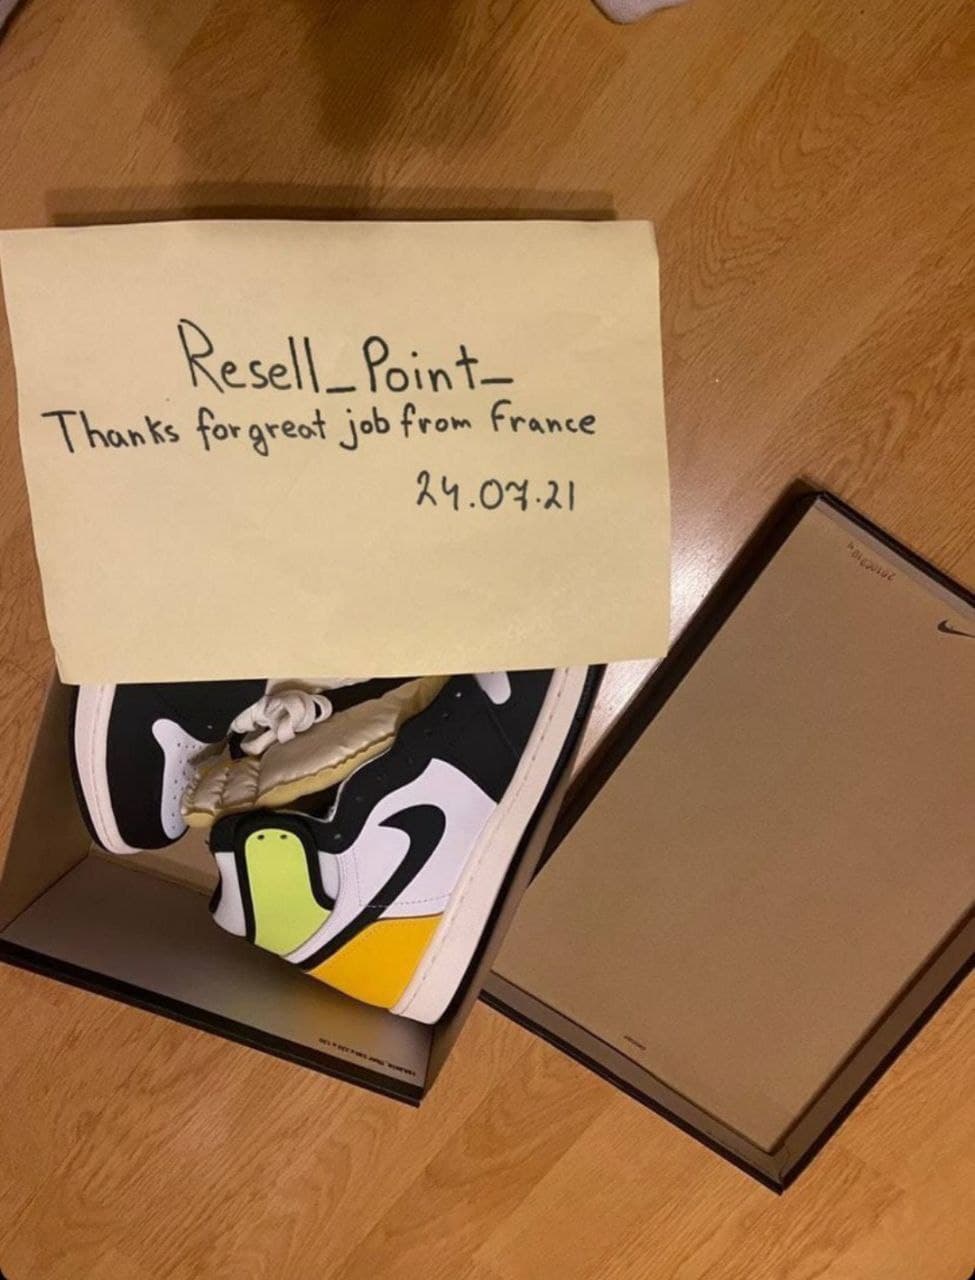 Resell_Point_
Thanks for great job from France
24.07.21